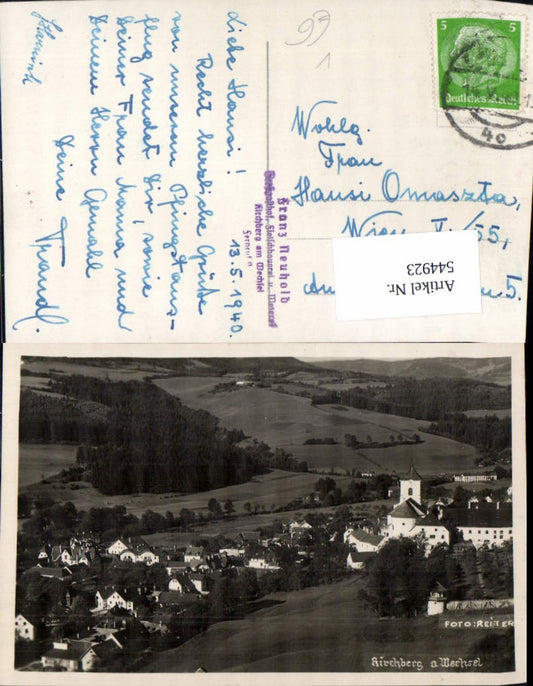 Liebe Hansi!
13.5.1940.
Recht herzliche Grüße
von unserem Pfingstaus-
flug sendet Dir, sowie
Deiner Frau Mama und
Deinem Herrn Gemahl
Deine Traudl.
Heinrich
Franz Neuhold
Gasthof, Fleischhauerei u.
Kirchberg am Wechsel
97
1
5 5
Deutsches Reich
40
Wohlg.
Frau
Hansi Omaszta,
Wien V./55,
5.
Artikel Nr.
544923
FOTO: REITER
Kirchberg a Wechsel